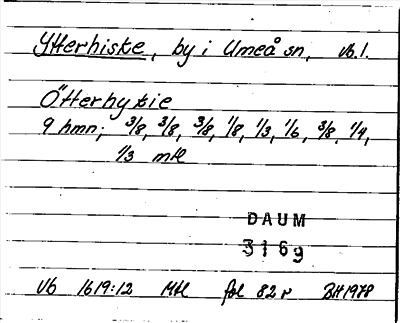 Ytterhiske, by i Umeå sn, Vb.l.
Ötterhyskie
9 hmn; 3/8, 3/8, 3/8, 1/8, 1/3, 1/6, 3/8, 1/4,
1/3 mtl
DAUM
3169
Vb 1619:12 Mtl fol 82 r BH 1978